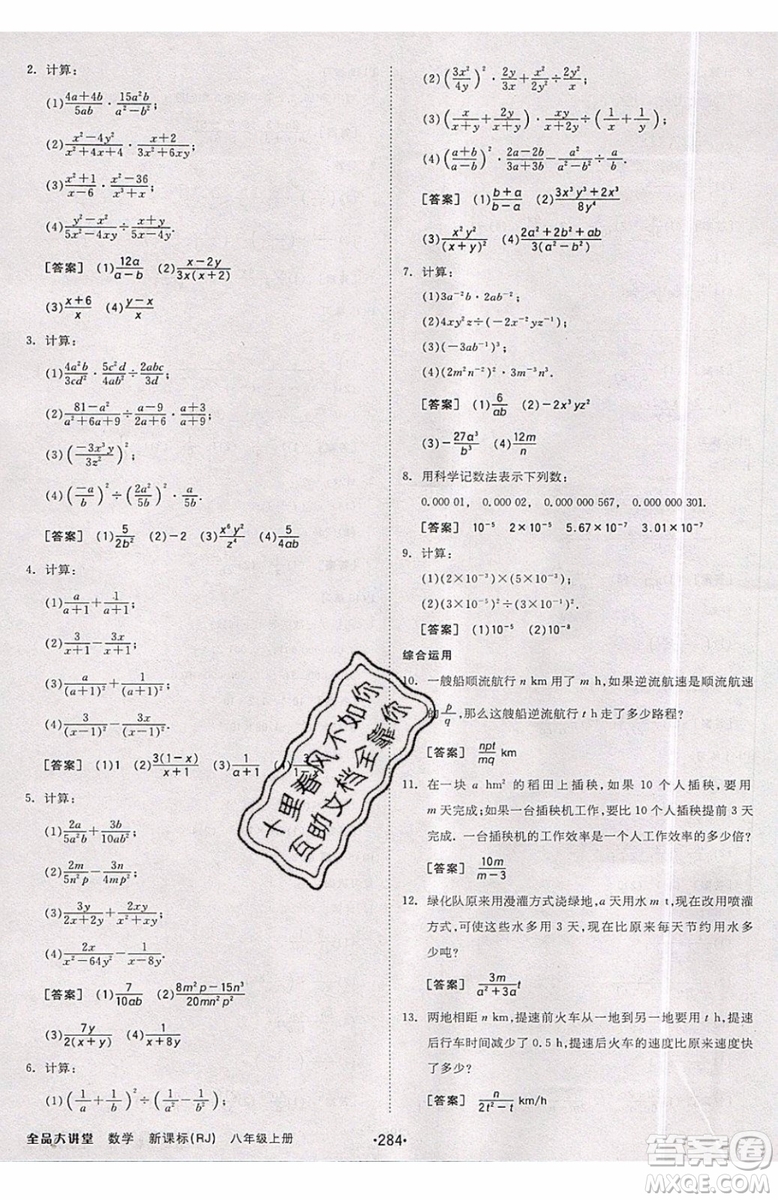 2. 计算：
(1) (4a+4b)/(5ab) · (15a²b)/(a²−b²)；
(2) (x²−4y²)/(x²+4x+4) · (x+2)/(3x²+6xy)；
(3) (x²+1)/(x−6) · (x²−36)/(x³+x)；
(4) (y²−x²)/(5x²−4xy) ÷ (x+y)/(5x−4y)；
[答案] (1) 12a/(a−b) (2) (x−2y)/(3x(x+2))
(3) (x+6)/x (4) (y−x)/x
3. 计算：
(1) (4a²b)/(3cd²) · (5c²d)/(4ab²) ÷ (2abc)/(3d)；
(2) (81−a²)/(a²+6a+9) ÷ (a−9)/(2a+6) · (a+3)/(a+9)；
(3) ((−3x³y)/(3z²))²；
(4) (−a/b)² ÷ (2a²/(5b))² · a/(5b)；
[答案] (1) 5/(2b²) (2) −2 (3) x⁶y²/z⁴ (4) 5/(4ab)
4. 计算：
(1) a/(a+1) + 1/(a+1)；
(2) 3/(x+1) − 3x/(x+1)；
(3) a/(a+1)² + 1/(a+1)²；
[答案] (1) 1 (2) 3(1−x)/(x+1) (3) 1/(a+1)
5. 计算：
(1) 2a/(5a²b) + 3b/(10ab²)；
(2) 2m/(5n²p) − 3n/(4mp²)；
(3) 3y/(2x+2y) + 2xy/(x²+xy)；
(4) 2x/(x²−64y²) − 1/(x−8y)；
[答案] (1) 7/(10ab) (2) (8m²p−15n³)/(20mn²p²)
(3) 7y/(2(x+y)) (4) 1/(x+8y)
6. 计算：
(1) (1/a + 1/b)² ÷ (1/a² − 1/b²)；
(2) (3x²/(4y))² · 2y/(3x) + x²/(2y²) ÷ 2y²/x；
(3) x/(x+y) · xy/(x+y) ÷ (1/x + 1/y)；
(4) ((a−b)/(a+b))² · (2a−2b)/(3a+3b) − a²/(a²−b²) ÷ a/b.
[答案] (1) (b+a)/(b−a) (2) (3x³y³+2x³)/(8y⁴)
(3) x²y²/(x+y)³ (4) (2a²+2b²+ab)/(a²−b²)
7. 计算：
(1) 3a⁻²b · 2ab⁻²；
(2) 4xy²z ÷ (−2x⁻²yz⁻¹)；
(3) (−3ab⁻¹)³；
(4) (2m²n⁻²)² · 3m⁻³n³.
[答案] (1) 6/(ab) (2) −2x³yz²
(3) −27a³/b³ (4) 12m/n
8. 用科学记数法表示下列数：
0.000 01，0.000 02，0.000 000 567，0.000 000 301.
[答案] 10⁻⁵ 2×10⁻⁵ 5.67×10⁻⁷ 3.01×10⁻⁷
9. 计算：
(1) (2×10⁻³)×(5×10⁻³)；
(2) (3×10⁻⁵)²÷(3×10⁻¹)².
[答案] (1) 10⁻⁵ (2) 10⁻⁸
综合运用
10. 一艘船顺流航行 n km 用了 m h，如果逆流航速是顺流航速
的 p/q，那么这艘船逆流航行 t h 走了多少路程？
[答案] npt/(mq) km
11. 在一块 a hm² 的稻田上插秧，如果 10 个人插秧，要用 m
天完成；如果一台插秧机工作，要比 10 个人插秧提前 3 天
完成. 一台插秧机的工作效率是一个人工作效率的多少倍？
[答案] 10m/(m−3)
12. 绿化队原来用漫灌方式浇绿地，a 天用水 m t，现在改用喷灌
方式，可使这些水多用 3 天，现在比原来每天节约用水多
少吨？
[答案] 3m/(a²+3a) t
13. 两地相距 n km，提速前火车从一地到另一地要用 t h，提速
后行车时间减少了 0.5 h，提速后火车的速度比原来速度快
了多少？
[答案] n/(2t²−t) km/h
十里春风不如你
互助文档全靠你
全品大讲堂 数学 新课标(RJ) 八年级上册
·284·
作业精灵